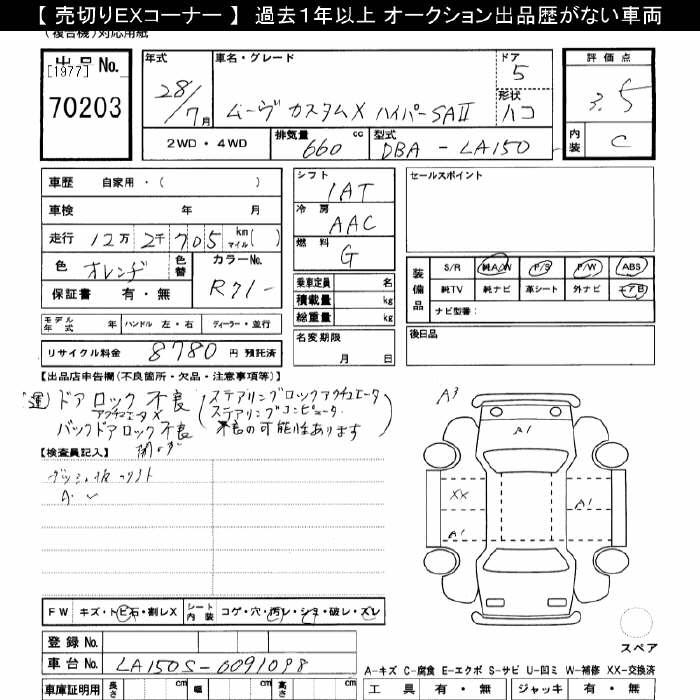 【 売切りEXコーナー 】 過去1年以上 オークション出品歴がない車両
(複合機)対応用紙
出品 No.
[1977]
70203
年式
28/7月
車名・グレード
ムーヴ カスタムX ハイパーSAII
ドア
5
形状
ハコ
評価点
3.5
内装
C
2WD・4WD
排気量 660 cc
型式 DBA - LA150
車歴 自家用・( )
車検 年 月
走行 12万 2千 705 km マイル( )
色 オレンヂ
色替
カラーNo. R71-
保証書 有・無
シフト
1AT
冷房
AAC
燃料
G
乗車定員 名
積載量 kg
総重量 kg
セールスポイント
装備品
S/R 純A/W P/S P/W ABS
純TV 純ナビ 革シート 外ナビ エアB
ナビ型番:
モデル年式 年 ハンドル 左・右 ディーラー・並行
リサイクル料金 8780 円 預託済
名変期限
月 日
後日品
【出品店申告欄(不良箇所・欠品・注意事項等)】
(運)ドアロック不良 (ステアリングロックアクチュエータ
アクチュエータX ステアリングコンピュータ
バックドアロック不良 不良の可能性あります)
【検査員記入】
A3
A1
XX
A1
A1
FW キズ・トビ石・割レX
シート内装 コゲ・穴・汚レ・シミ・破レ・スレ
登録 No.
車台 No. LA150S-0091098
車庫証明用 長さ cm 幅 cm 高さ cm
スペア
A-キズ C-腐食 E-エクボ S-サビ U-凹ミ W-補修 XX-交換済
工具 有・無 ジャッキ 有・無